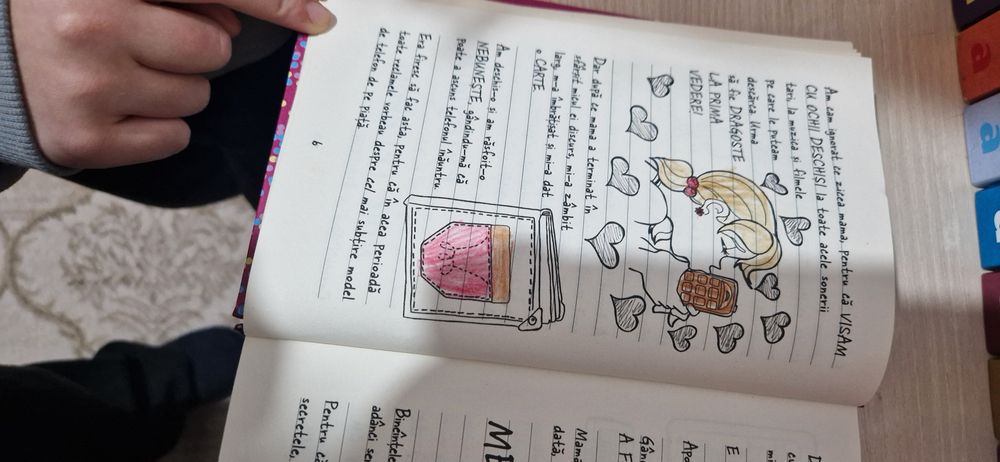 Am cam ignorat ce zicea mama, pentru că VISAM
CU OCHII DESCHIȘI la toate acele sonerii
tari, la muzica și filmele
pe care le puteam
descărca. Urma
să fie DRAGOSTE
LA PRIMA
VEDERE!
Dar după ce mama a terminat în
sfârșit micul ei discurs, mi-a zâmbit
larg, m-a îmbrățișat și mi-a dat
o CARTE.
Am deschis-o și am răsfoit-o
NEBUNEȘTE, gândindu-mă că
poate a ascuns telefonul înăuntru.
Era firesc să fac asta, pentru că în acea perioadă
toate reclamele vorbeau despre cel mai subțire model
de telefon de pe piață.
6
D
mi
E
Apo
Gân
A F
Mamă
dată,
ME
Bineînțeles
adânci se
Pentru că
secretele,
a
a
a